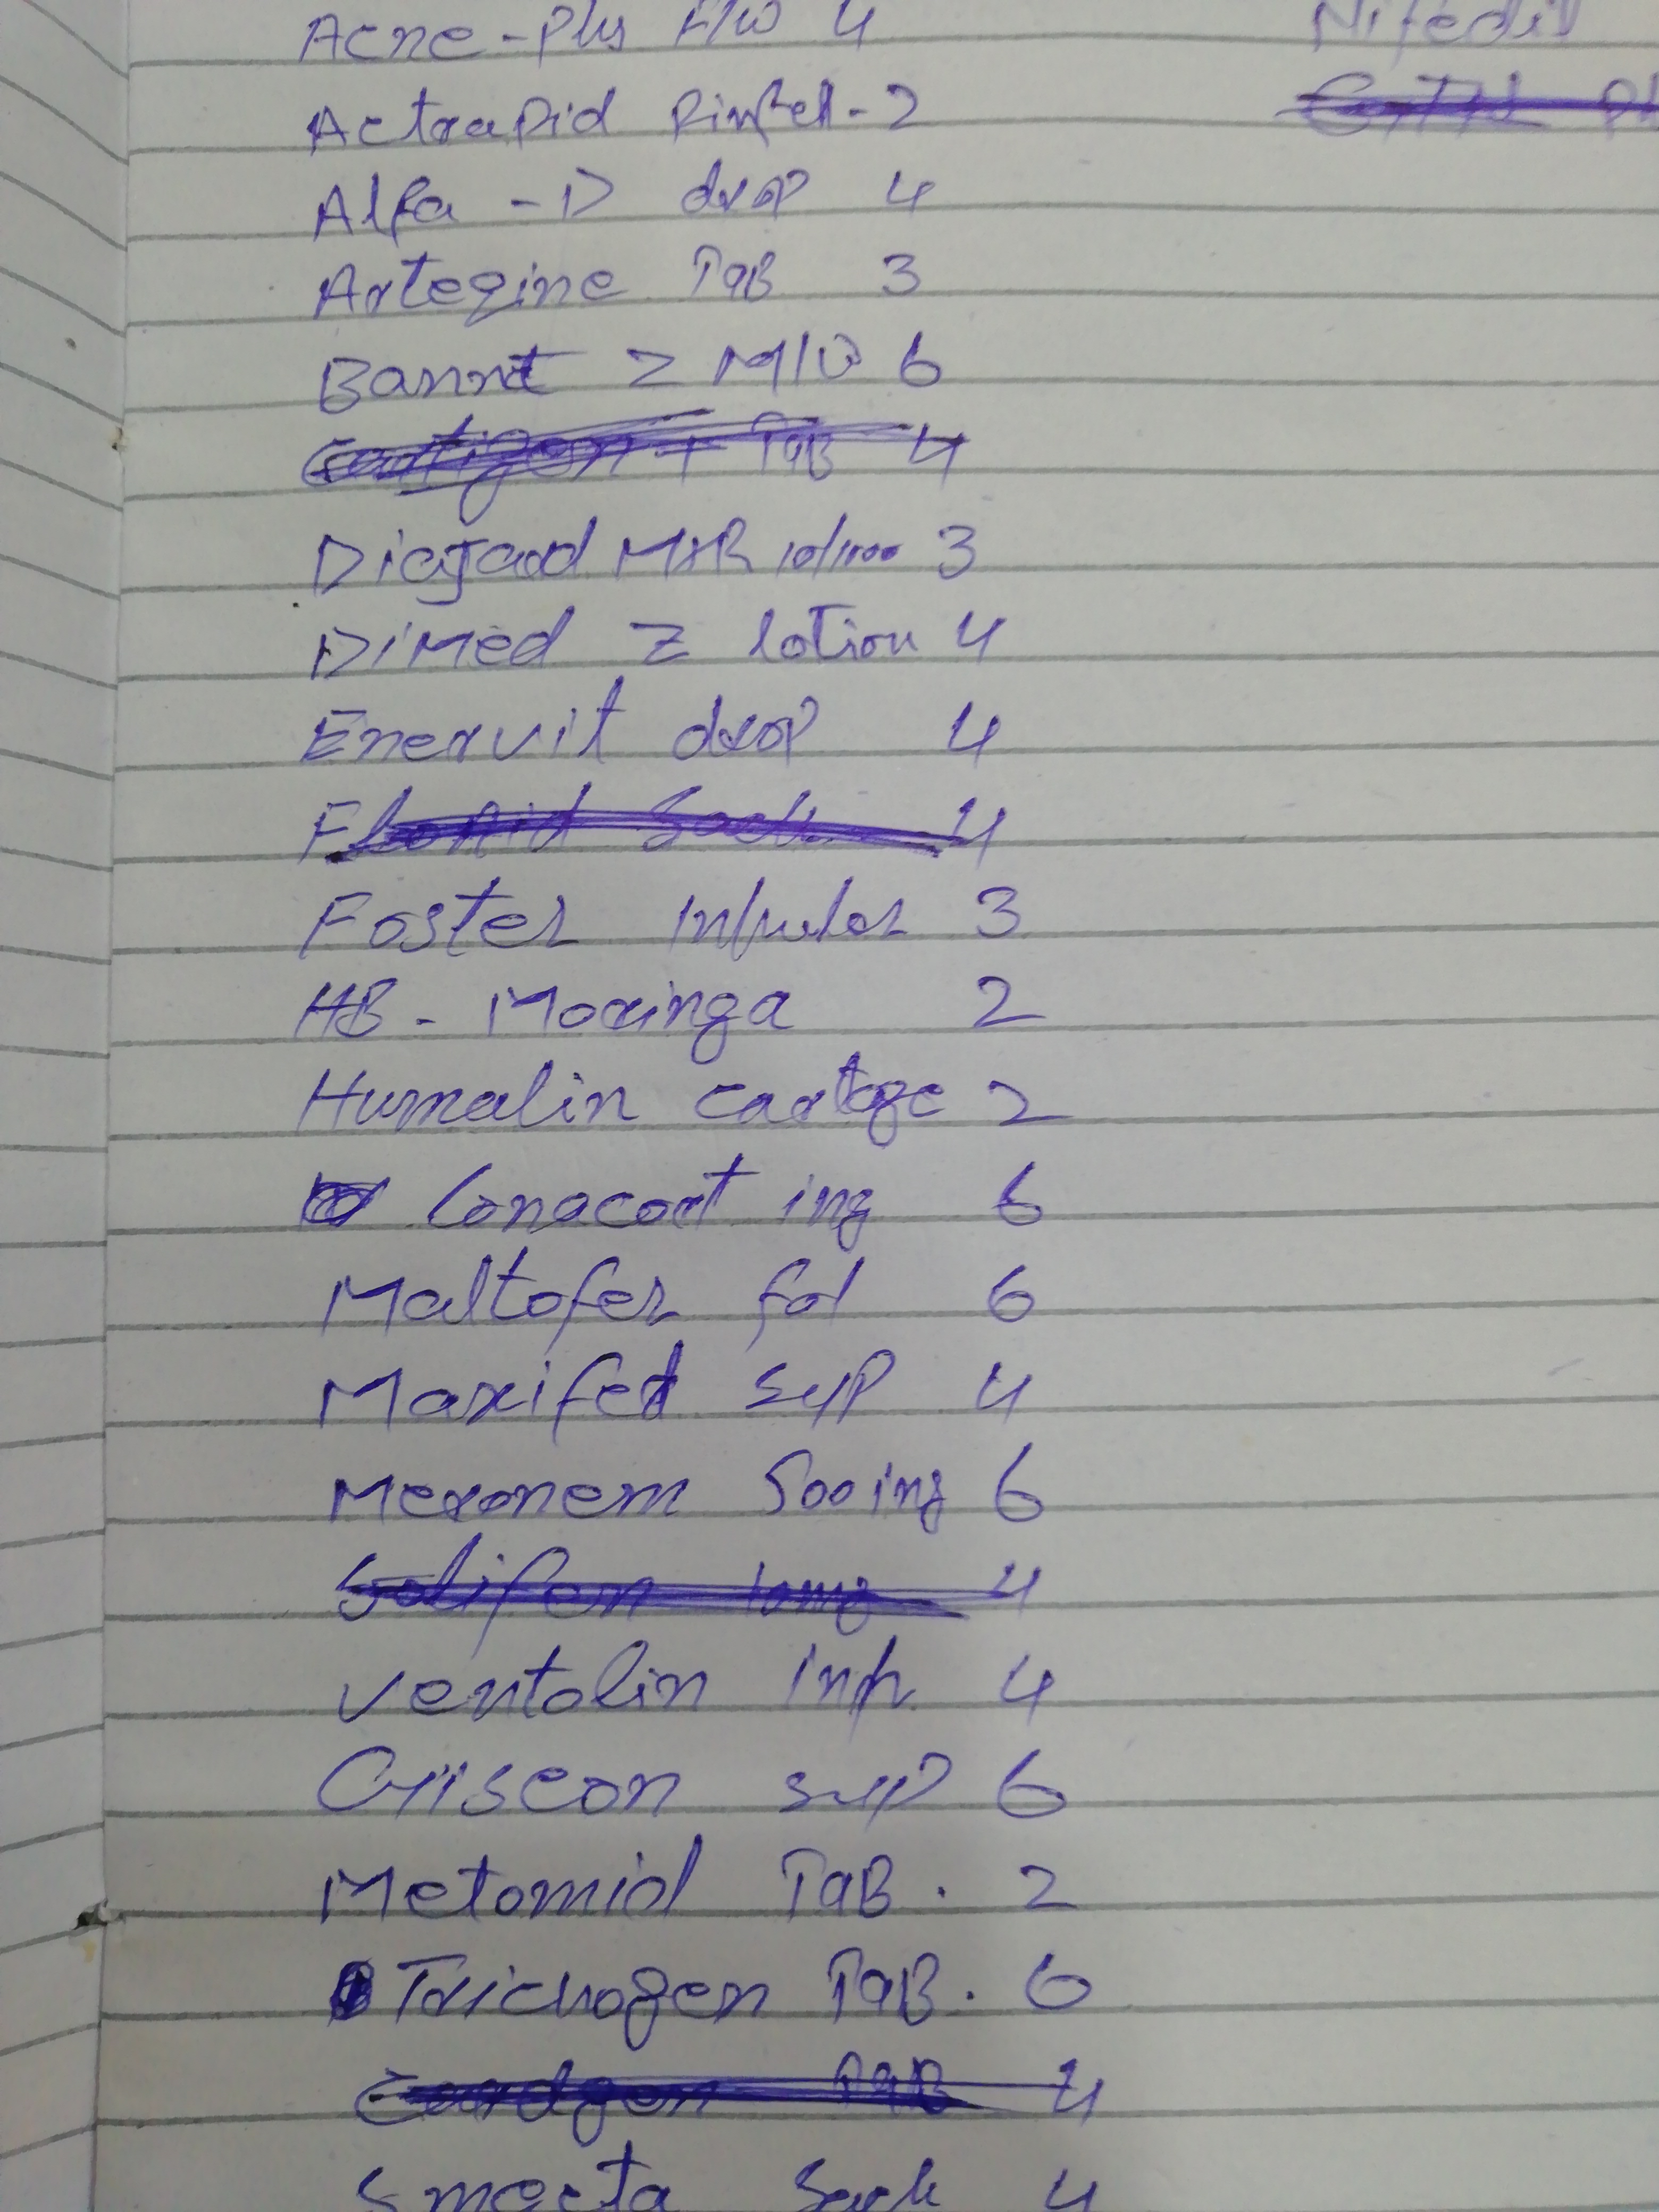 Acne-Plus F/W 4
Actrapid Pinfell-2
Alfa -D drop 4
Artegine TaB 3
Bannt Z M/W 6
TaB 4
Diajard MXR 10/1000 3
DiMed Z lotion 4
Enervit drop 4
4
Foster Inhuler 3
HB - Moringa 2
Humalin cartge 2
Lonacort inj 6
Maltofer fol 6
Maxifed syp 4
Meronem 500 inj 6
Solifen 10mg 4
Ventolin Inh. 4
Griseon syp 6
Metomiol TaB . 2
Trichogen TaB . 6
TaB 4
Smecta Sach 4
Nifedil